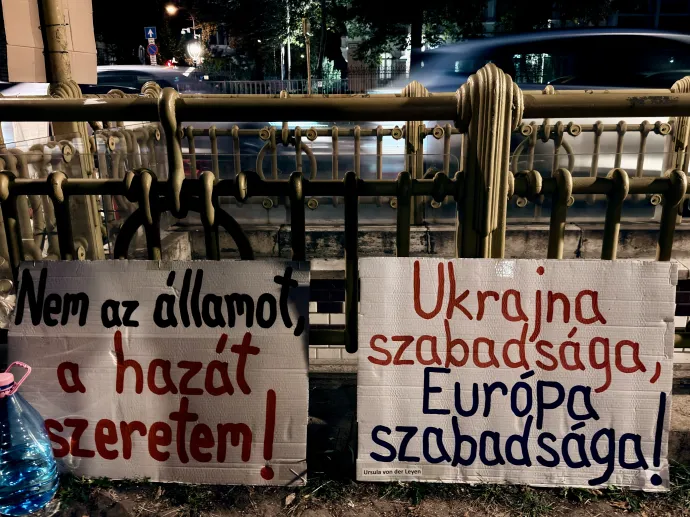 Nem az államot,
a hazát
szeretem!
Ukrajna
szabadsága,
Európa
szabadsága!
Ursula von der Leyen